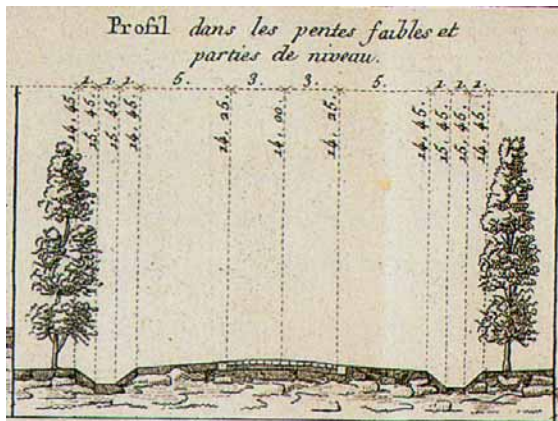 Profil dans les pentes faibles et
parties de niveau.
1. 1. 1. 5. 3. 3. 5. 1. 1. 1.
14. 45.
15. 45.
15. 45.
14. 45.
14. 25.
14. 00.
14. 25.
14. 45.
15. 45.
15. 45.
14. 45.